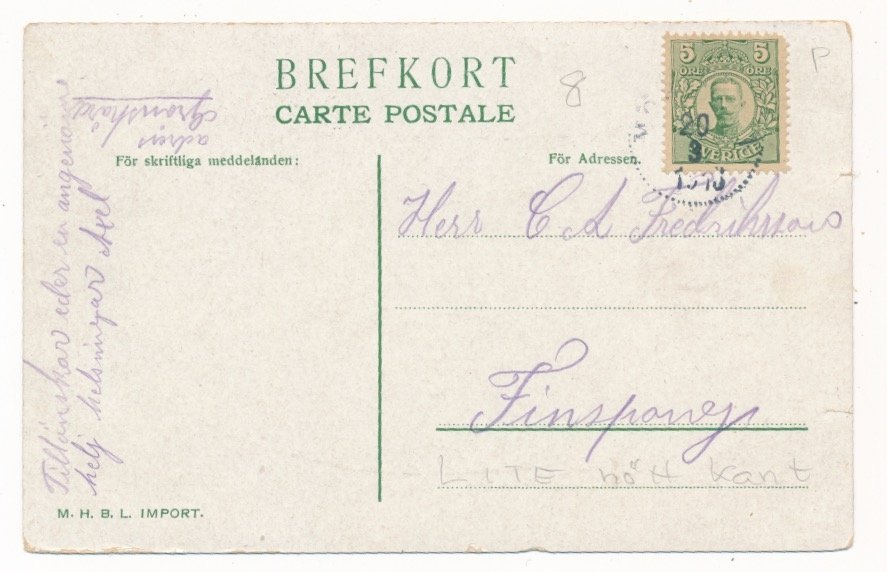 BREFKORT
CARTE POSTALE
För skriftliga meddelanden:
För Adressen.
5 5
ÖRE ÖRE
SVERIGE
20
3
8
P
Herr C A Fredriksson
Finspong
LITE nött kant
Tillönskar eder en angenäm
helj helsningar Axel
adres
M. H. B. L. IMPORT.